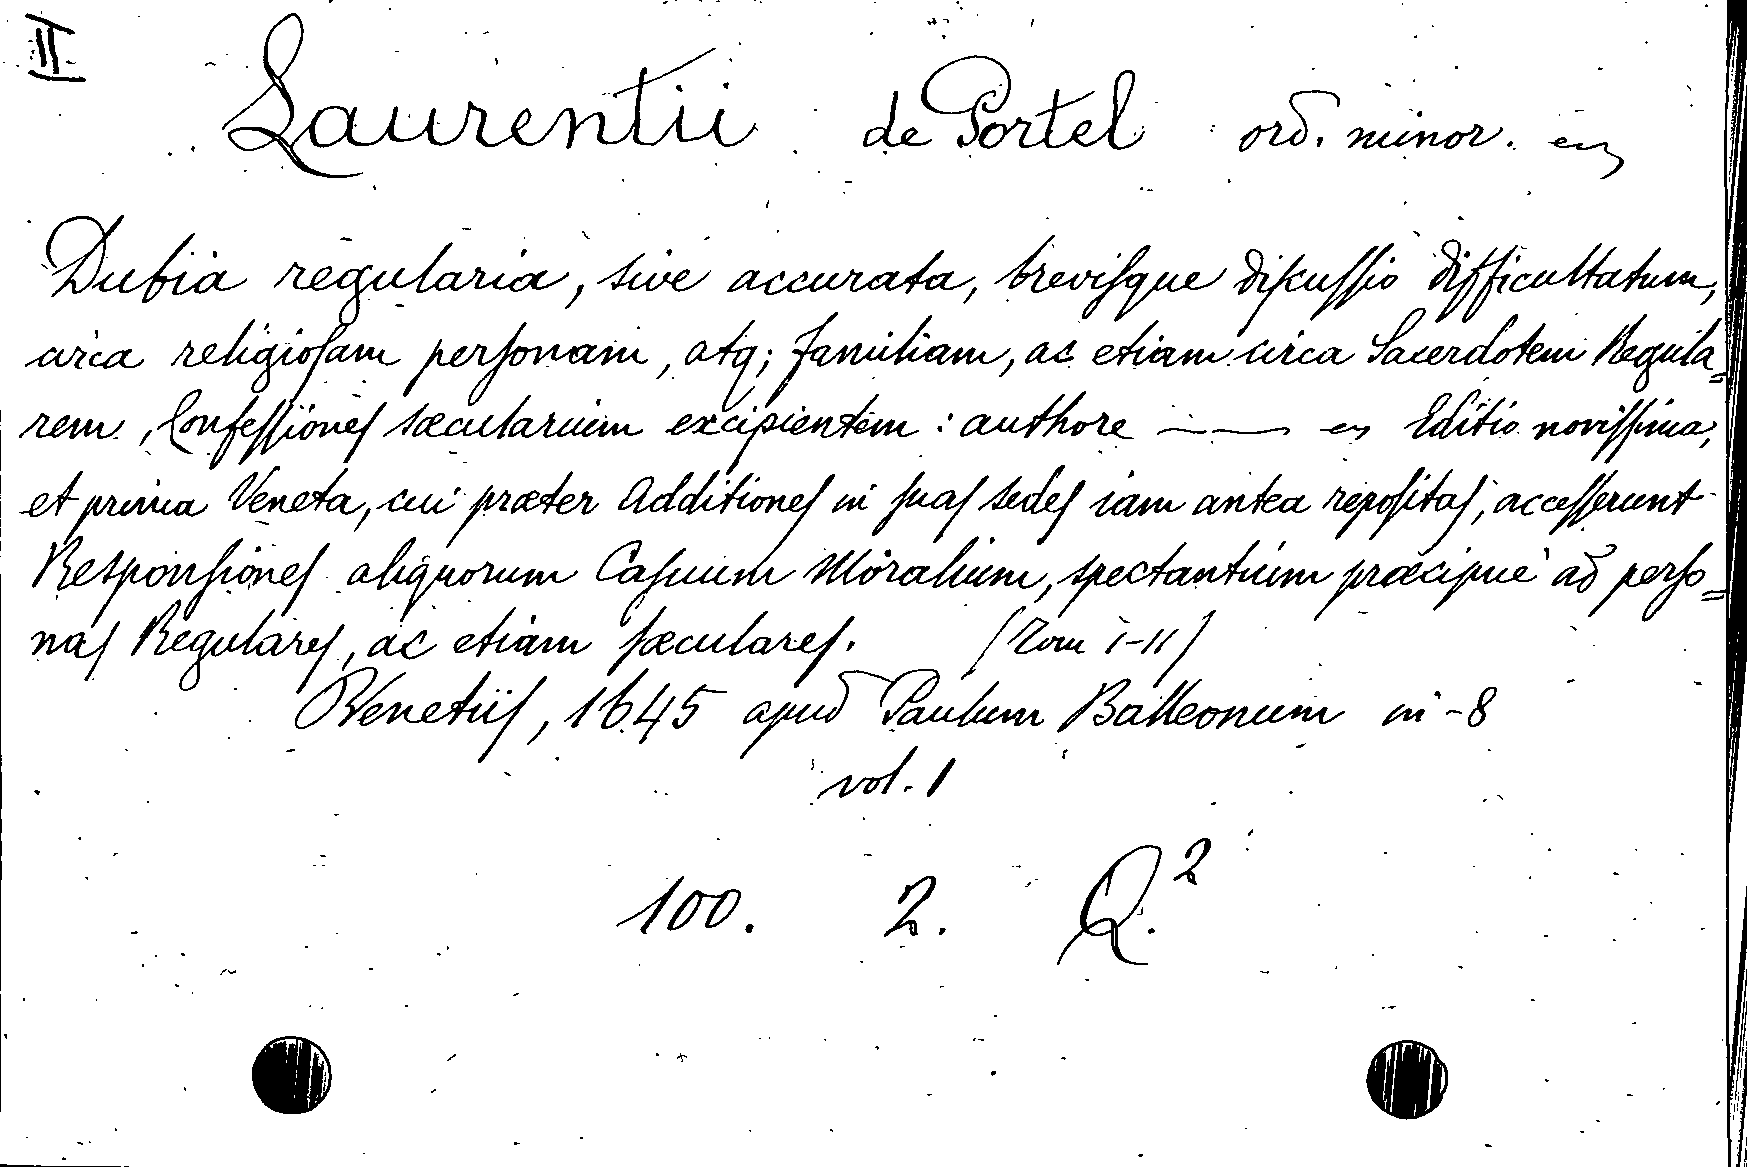 II
Laurentii de Portel ord. minor. etc
Dubia regularia, sive accurata, breviſque diſkuſſio difficultatum,
circa religioſam perſonam, atq; familiam, ac etiam circa Sacerdotem Regula=
rem, Confeſſioneſ sæcularium excipientem: authore —— etc Editio noviſſima,
et prima Veneta, cui præter Additioneſ in ſuaſ sedeſ iam antea repoſitaſ, acceſſerunt
Responſioneſ aliquorum Caſuum Moralium, spectantium præcipuè ad perſo=
naſ Regulareſ, ac etiam ſæculareſ. [Tom I-II]
Venetiiſ, 1645 apud Paulum Balleonum in-8
vol. 1
100. 2. Q.²